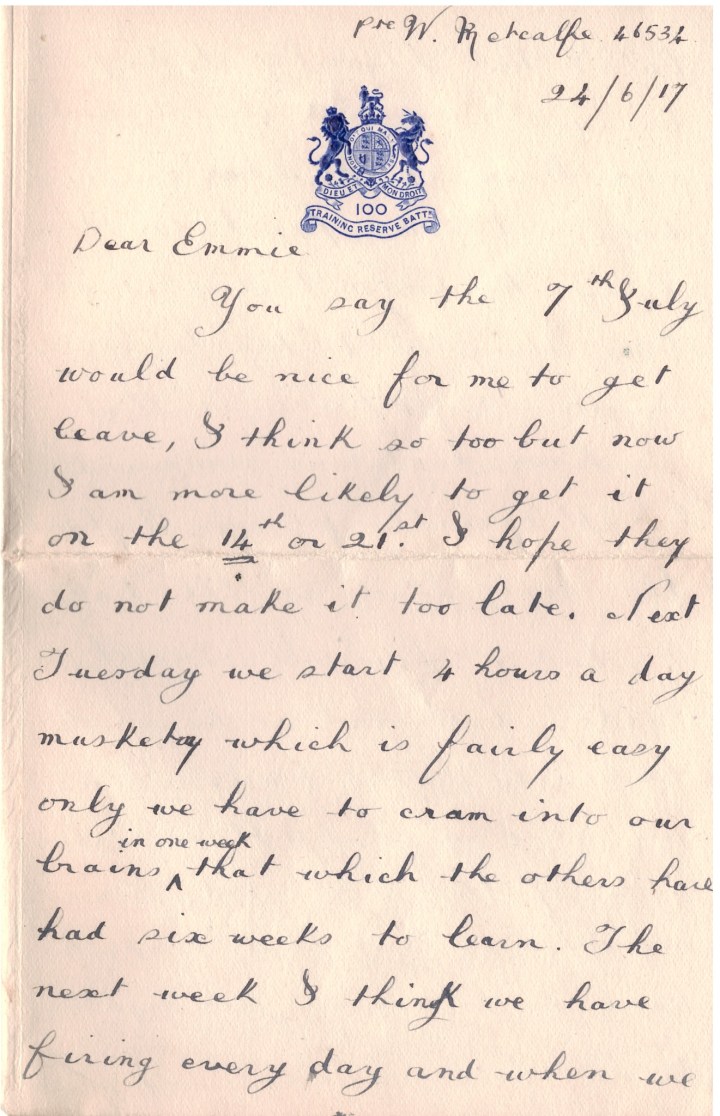 Pte W. Metcalfe 46534
24/6/17
DIEU ET MON DROIT
100
TRAINING RESERVE BATTN
Dear Emmie
You say the 7th July
would be nice for me to get
leave, I think so too but now
I am more likely to get it
on the 14th or 21.st I hope they
do not make it too late. Next
Tuesday we start 4 hours a day
musketry which is fairly easy
only we have to cram into our
in one week
brains ^ that which the others have
had six weeks to learn. The
next week I think we have
firing every day and when we